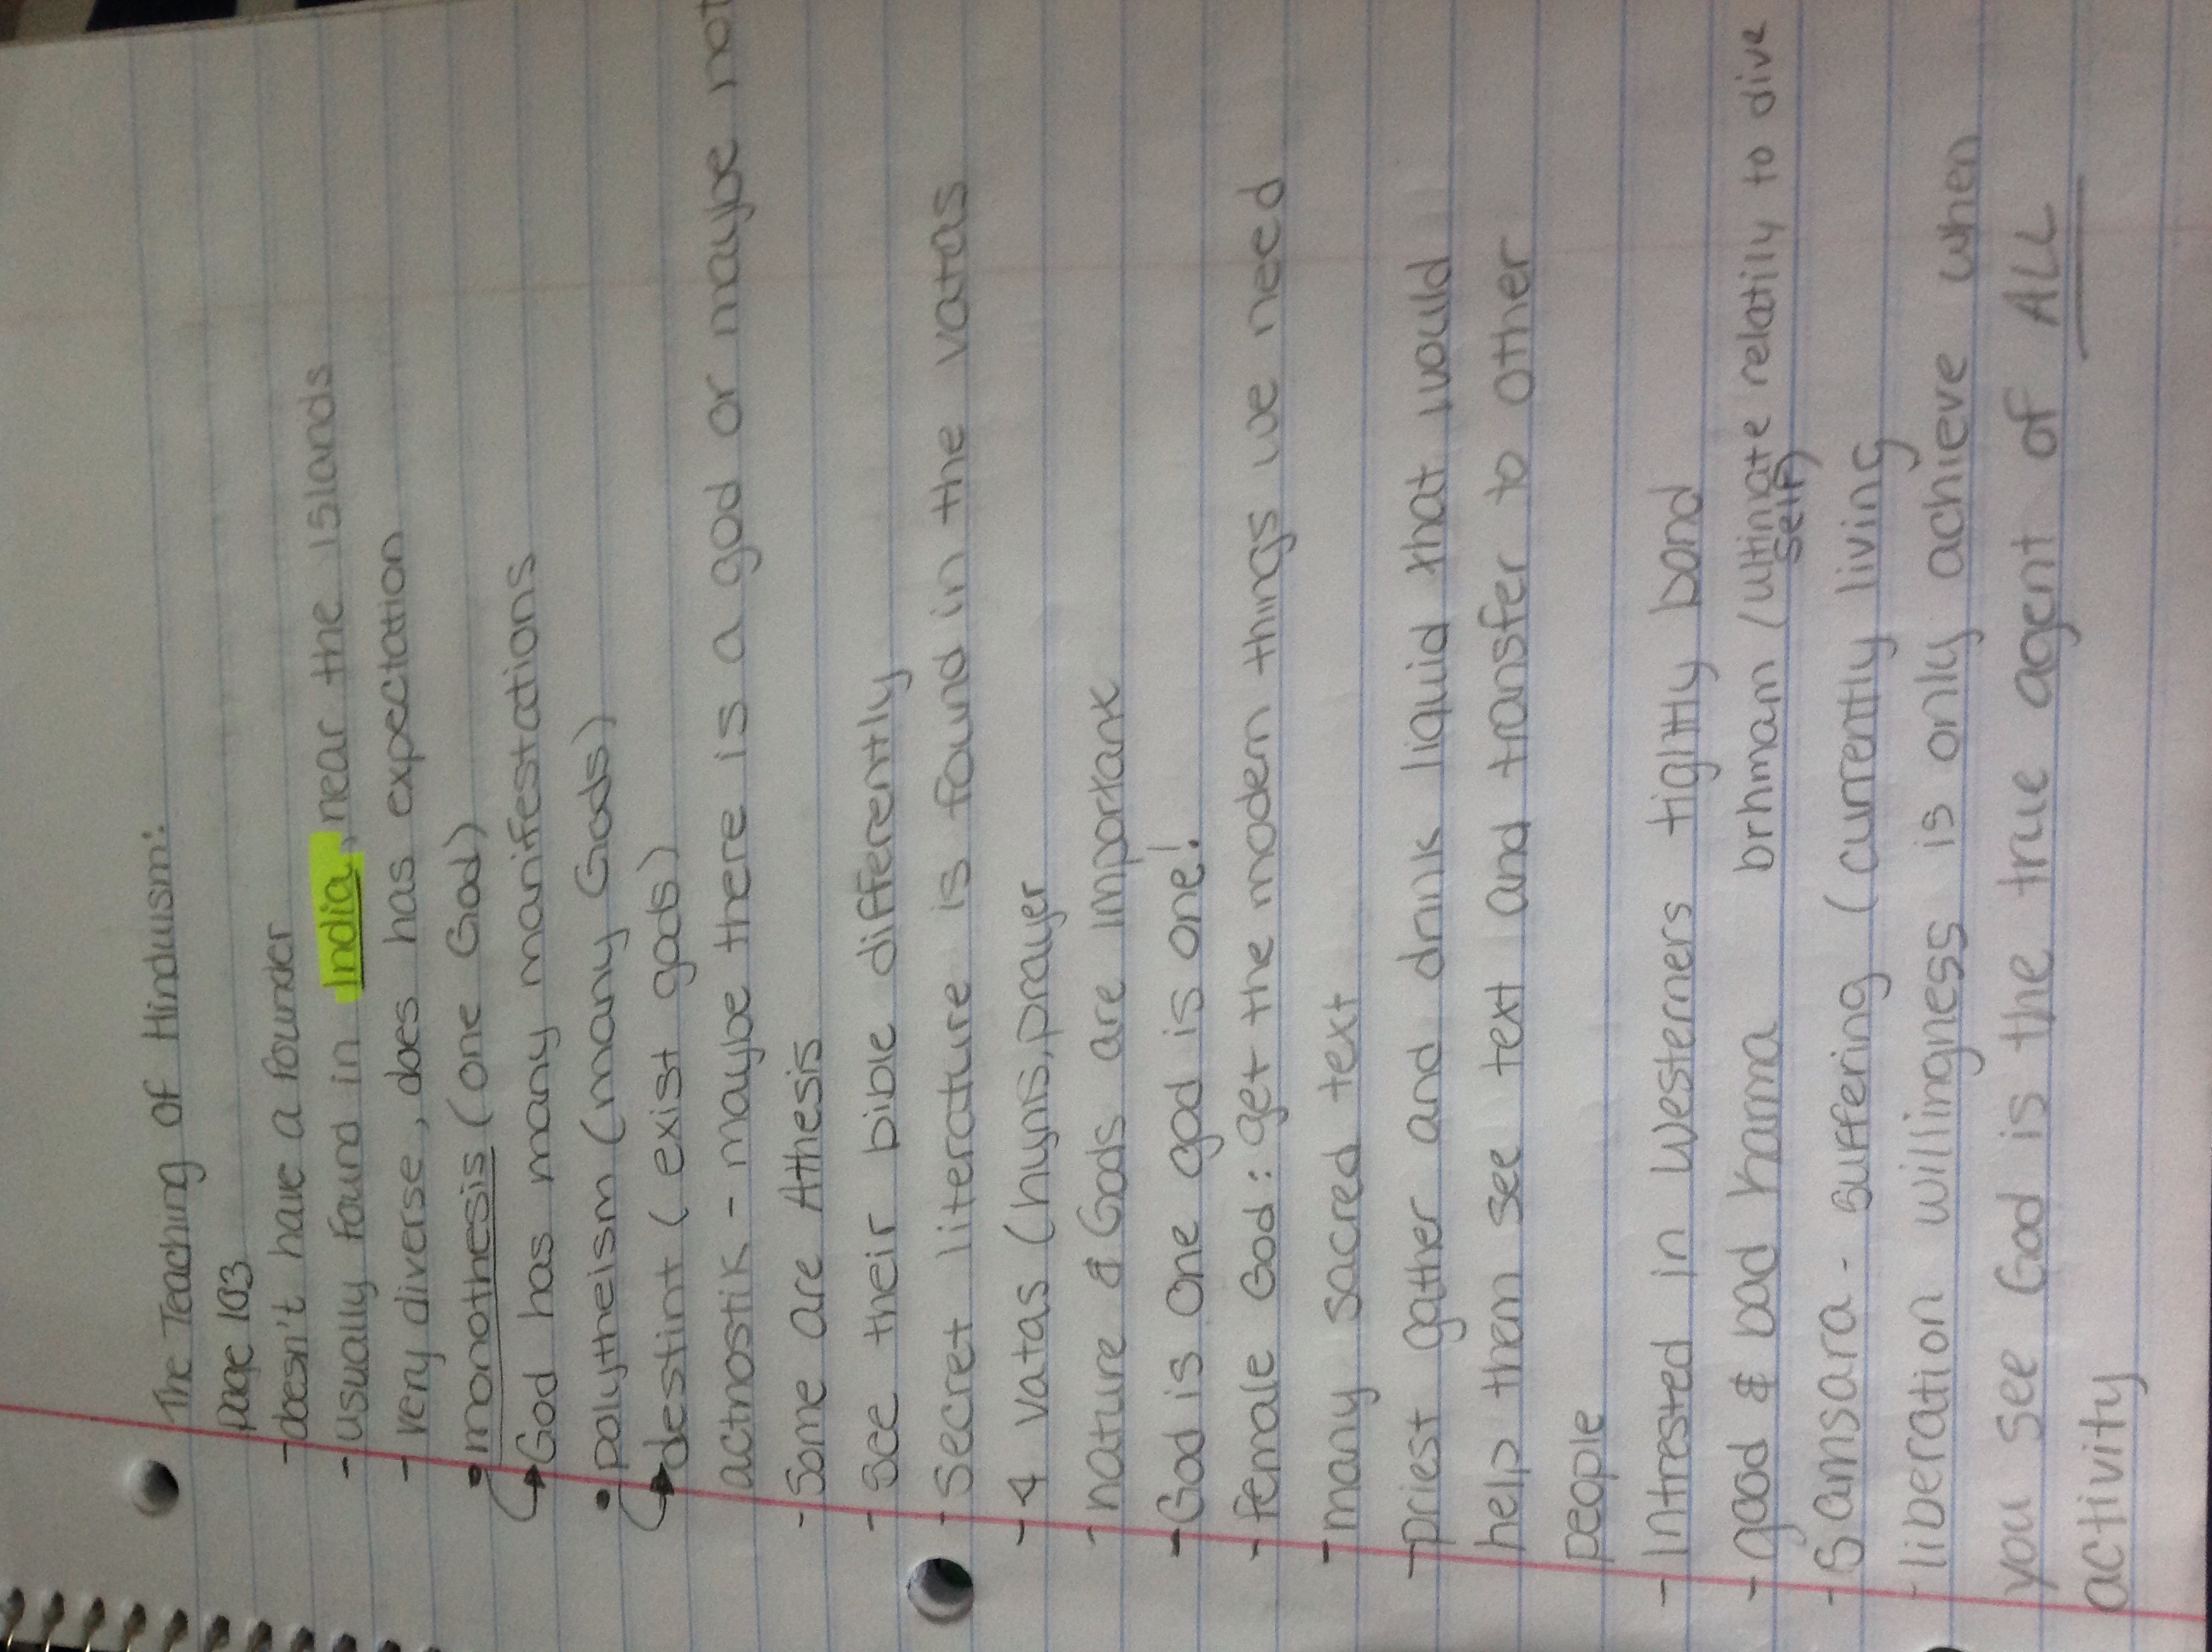 The Teaching of Hinduism:
page 103
- doesn't have a founder
- usually found in India, near the islands
- very diverse, does has expectation
• monothesis (one God)
↳ God has many manifestations
• polytheism (many Gods)
↳ destint (exist gods)
actnostik - maybe there is a god or maybe not
- Some are Athesis
- See their bible differently
- Secret literature is found in the vatas
- 4 vatas (hyms, prayer
- nature & Gods are important
- God is one god is one!
- female God: get the modern things we need
- many sacred text
- priest gather and drink liquid that would
help them see text and transfer to other
people
- Intrested in westerners tightly bond
- good & bad karma brhmam (ultinate relatily to dive
self)
- Samsara - suffering (currently living
- liberation willingness is only achieve when
you see God is the true agent of ALL
activity